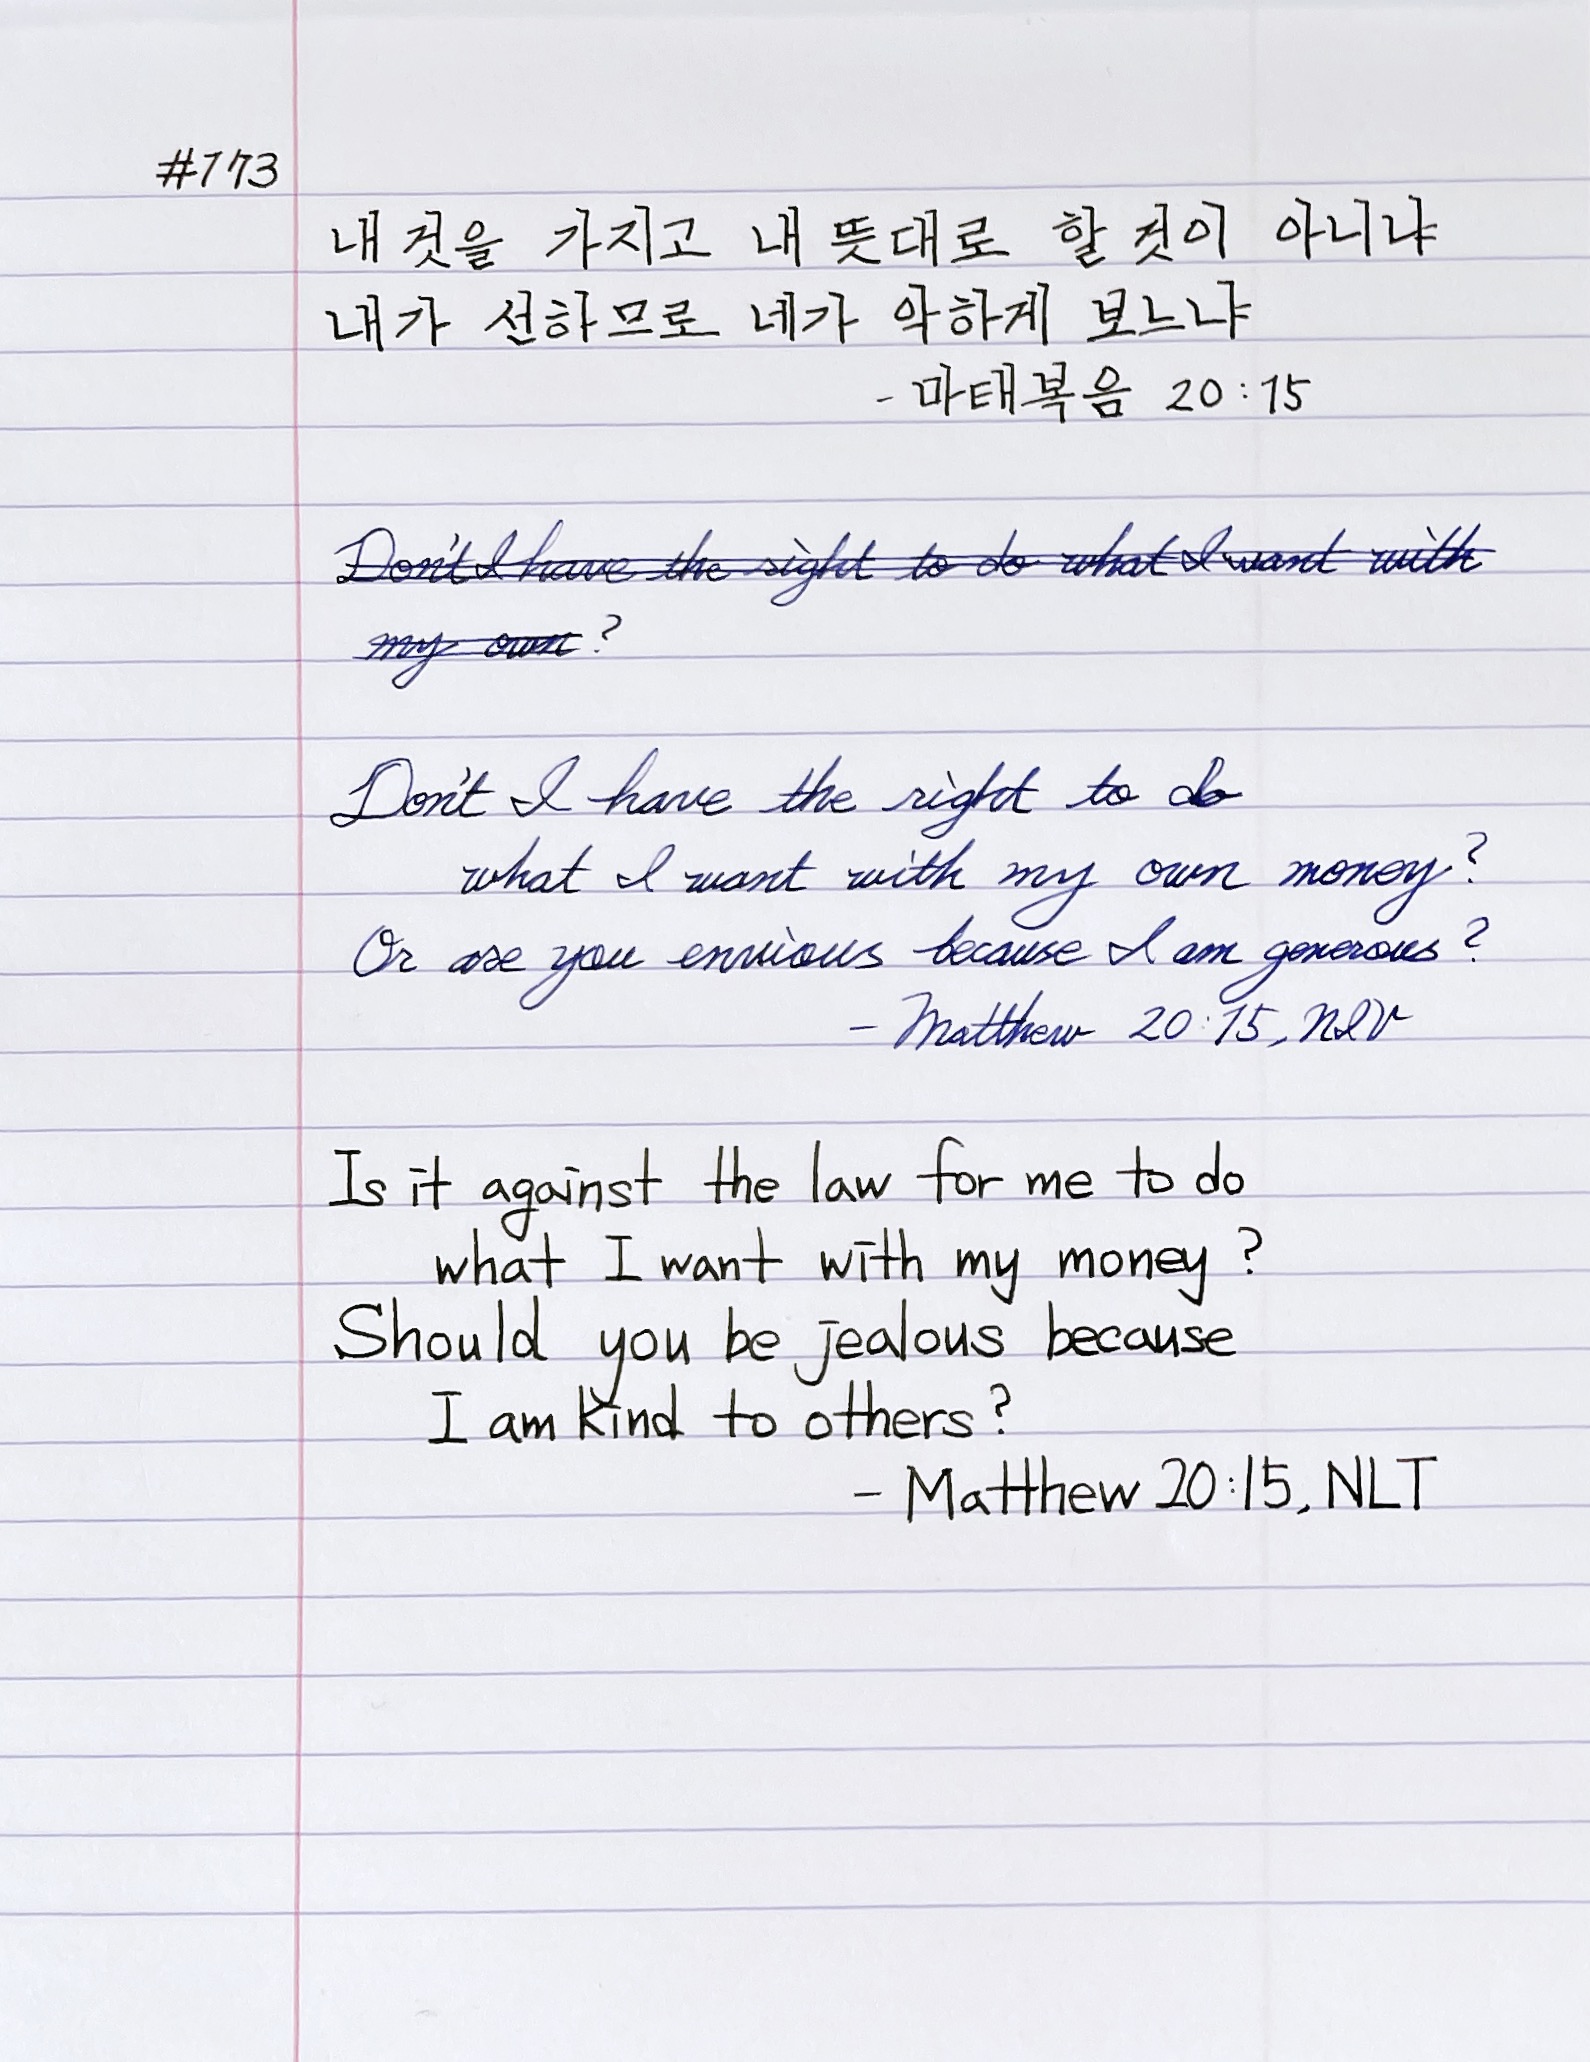 #173
내 것을 가지고 내 뜻대로 할 것이 아니냐
내가 선하므로 네가 악하게 보느냐
- 마태복음 20:15
Don't I have the right to do what I want with
my own?
Don't I have the right to do
what I want with my own money?
Or are you envious because I am generous?
- Matthew 20:15, NIV
Is it against the law for me to do
what I want with my money?
Should you be jealous because
I am kind to others?
- Matthew 20:15, NLT